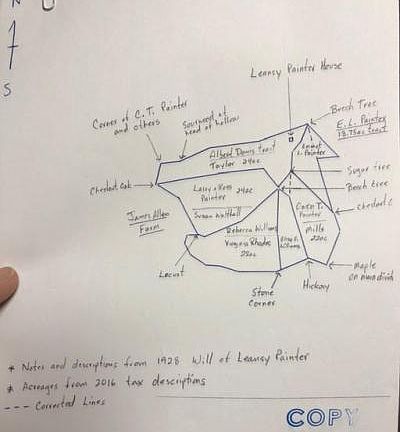 N
S
Leansy Painter House
Corner of C.T. Painter
and others
Sourwood at
head of hollow
Beech Tree
E.L. Painter
13.75ac tract
Albert Davis tract
Taylor 24ac
Emmet
L. Painter
Sugar tree
Beech tree
Chestnut Oak
Lacy & Ross 24ac
Painter
Susan Walthall
Cain T.
Painter
Mills
22ac
Chestnut O
James Allen
Farm
Rebecca Williams
Virginia Rhodes
22ac
Locust
Maple
on main divide
Hickory
Stone
Corner
* Notes and descriptions from 1928 Will of Leansy Painter
* Acreages from 2016 tax descriptions
--- Corrected Lines
COPY